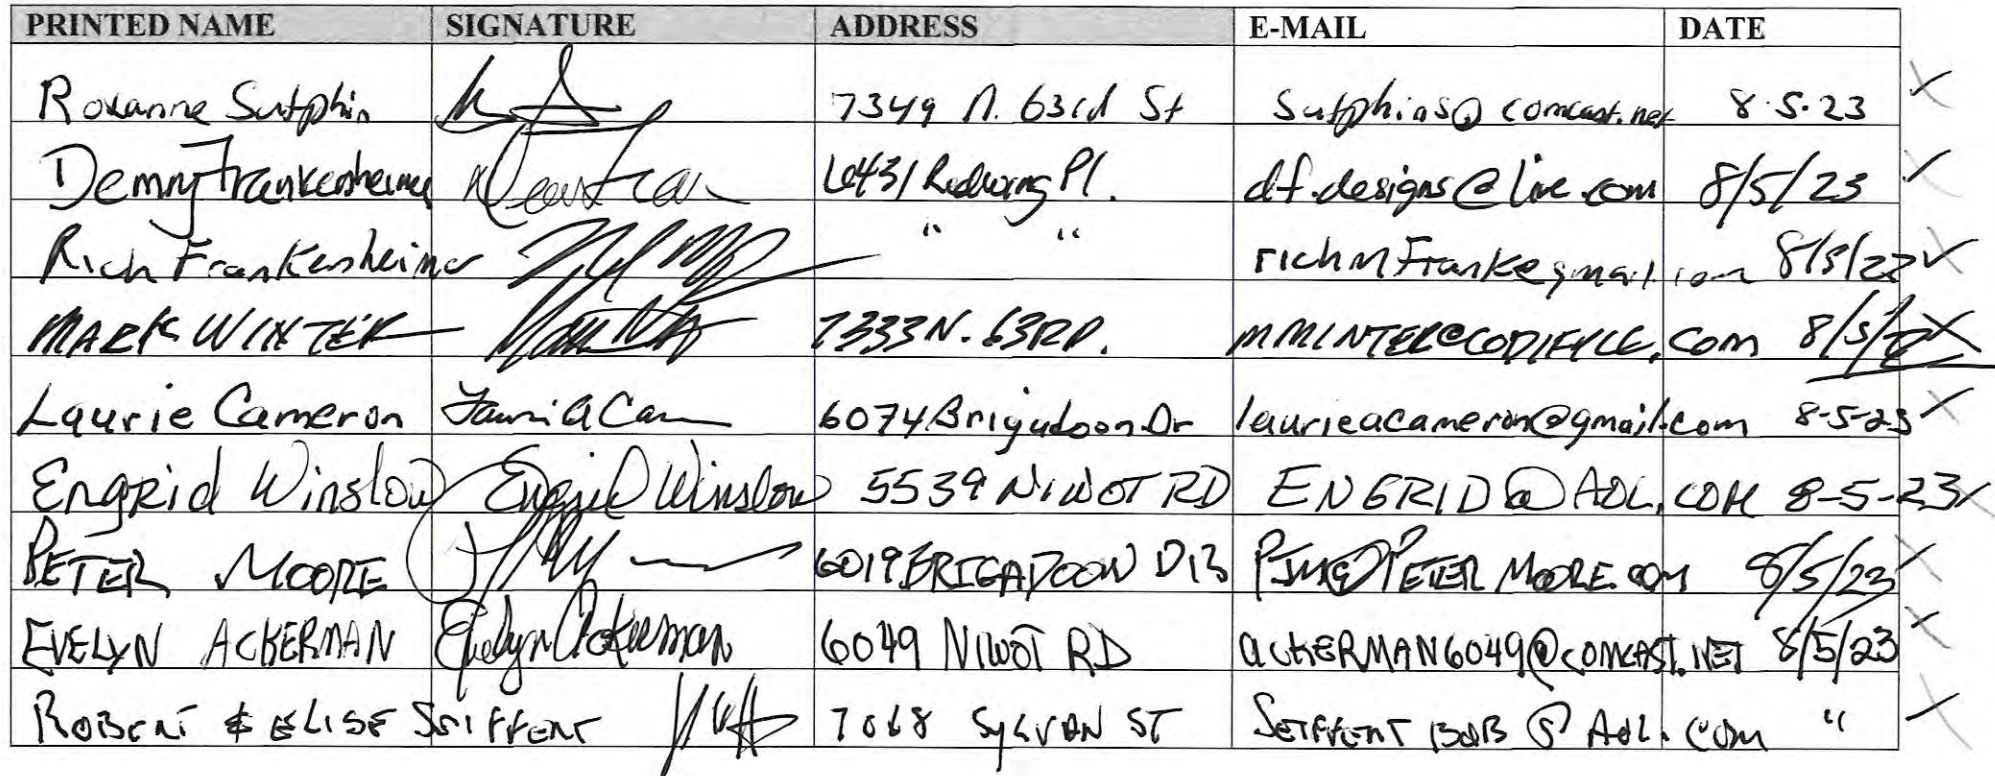 PRINTED NAME SIGNATURE ADDRESS E-MAIL DATE
Roxanne Sutphin 7349 N. 63rd St Sutphins@comcast.net 8.5.23
Demmy Frankenheimer 6431 Redwing Pl. df.designs@live.com 8/5/23
Rich Frankenheimer " " richmFranke gmail.com 8/5/23
MARK WINTER 7333 N. 63RD. .com 8/5/
Laurie Cameron Laurie A Cam 6074 Brigadoon Dr laurieacameron@gmail.com 8-5-23
Engrid Winslow Engrid Winslow 5539 NIWOT RD ENGRID@AOL.COM 8-5-23
PETER MOORE 6019 BRIGADOON DR PJM@PETERMOORE.COM 8/5/23
EVELYN ACKERMAN Evelyn Ackerman 6049 NIWOT RD ACKERMAN6049@COMCAST.NET 8/5/23
ROBERT & ELISE SEIFFERT 7068 SYLVAN ST SEIFFERTBOB@AOL.COM "